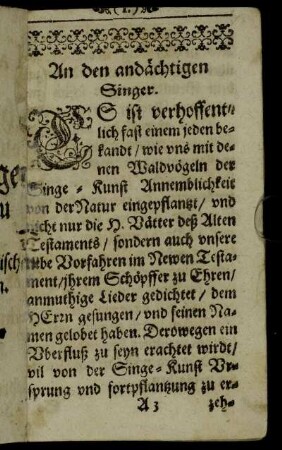 (1.)
An den andächtigen
Singer.
ES ist verhoffent/
lich fast einem jeden be-
kandt/ wie vns mit de-
nen Waldvögeln der
Singe-Kunst Annemblichkeit
von der Natur eingepflantzt/ vnd
nicht nur die H. Vätter deß Alten
Testaments/ sondern auch vnsere
liebe Vorfahren im Newen Testa-
ment/ jhrem Schöpffer zu Ehren/
anmuthige Lieder gedichtet/ dem
HErrn gesungen/ vnd seinen Na-
men gelobet haben. Derowegen ein
Vberfluß zu seyn erachtet wirdt/
vil von der Singe-Kunst Vr-
sprung vnd fortpflantzung zu er-
A 3 zeh-